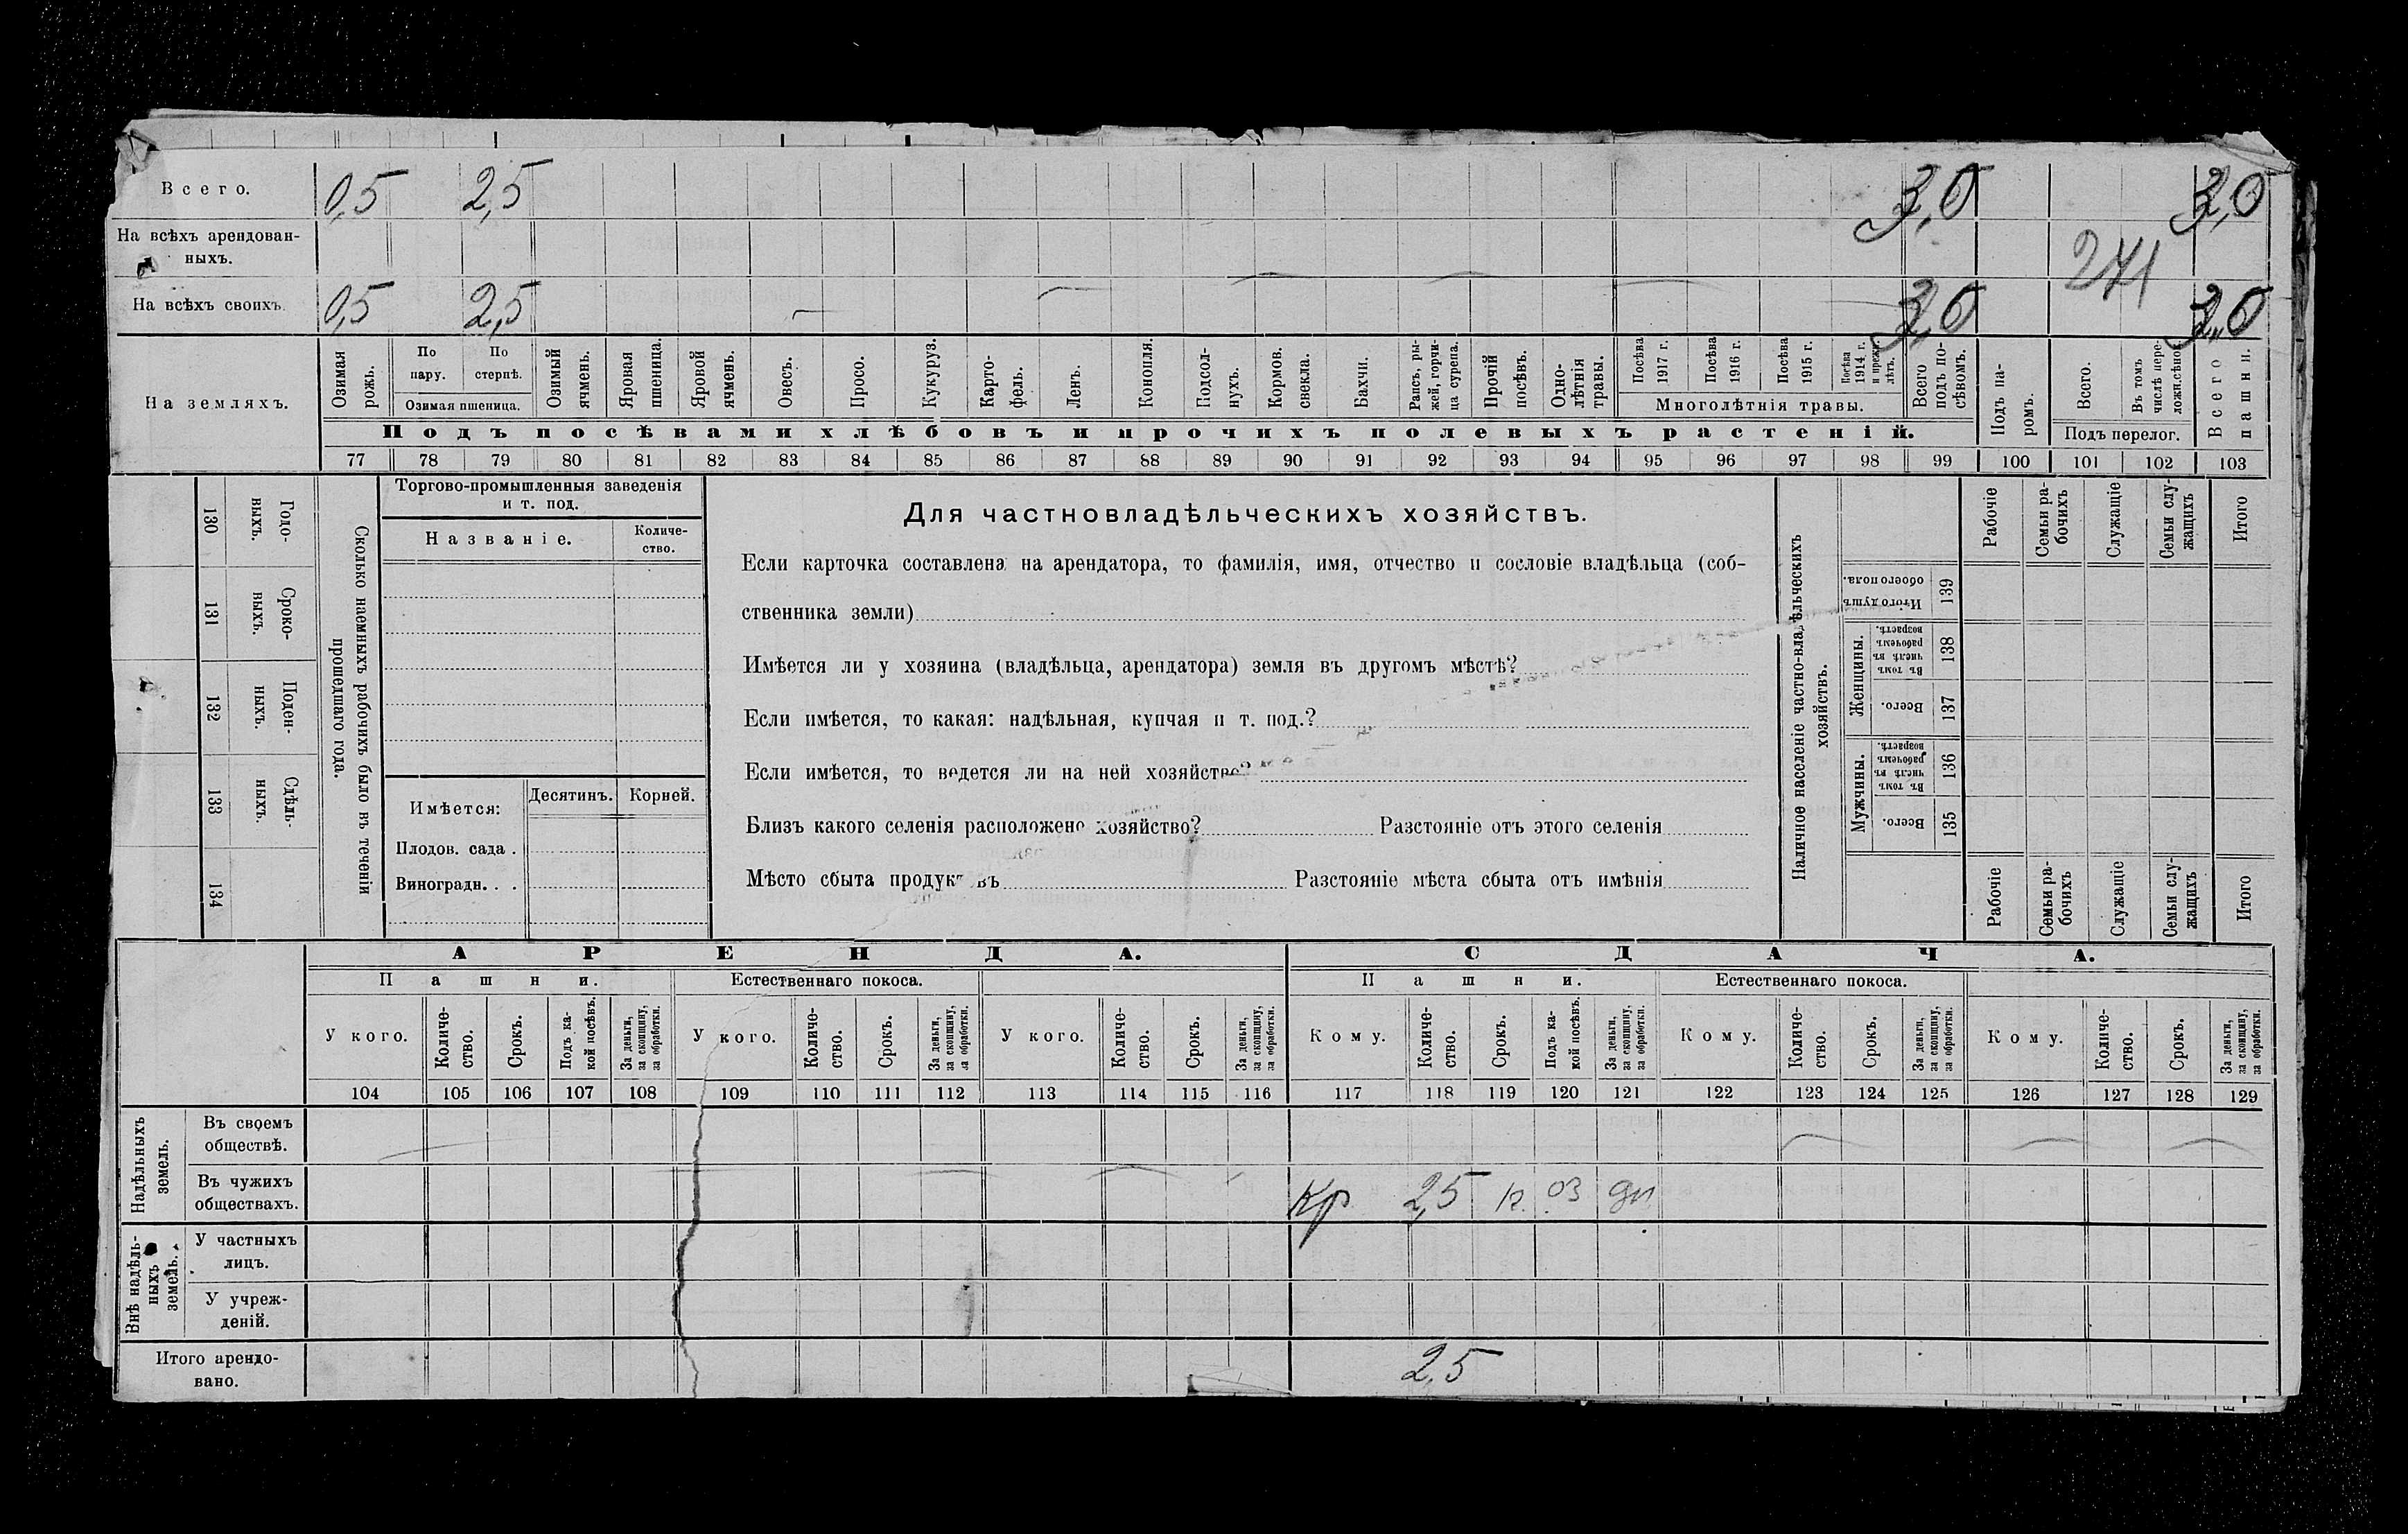 Всего. 0,5 2,5 3,0 3,0
На всѣхъ арендован-
ныхъ.
271
На всѣхъ своихъ. 0,5 2,5 3,0 3,0
На земляхъ.
Озимая рожь.
По пару.
По стернѣ.
Озимая пшеница.
Озимый ячмень.
Яровая пшеница.
Яровой ячмень.
Овесъ.
Просо.
Кукуруз.
Карто-
фель.
Ленъ.
Конопля.
Подсол-
нухъ.
Кормов. свекла.
Бахчи.
Рапсъ, ры-
жей, горчи-
ца сурепа.
Прочій посѣвъ.
Одно-
лѣтнія травы.
Посѣва 1917 г.
Посѣва 1916 г.
Посѣва 1915 г.
Посѣва 1914 г. и прежн. лѣтъ.
Многолѣтнія травы.
Всего подъ по-
сѣвомъ.
Подъ па-
ромъ.
Всего.
Въ томъ числѣ пере-
ложн.сѣнок.
Подъ перелог.
Всего пашни.
Подъ посѣвами хлѣбовъ и прочихъ полевыхъ растеній.
77 78 79 80 81 82 83 84 85 86 87 88 89 90 91 92 93 94 95 96 97 98 99 100 101 102 103
130 Годо-
ныхъ.
131 Сроко-
выхъ.
132 Поден-
ныхъ.
133 Сдѣль-
ныхъ.
134
Сколько наемныхъ рабочихъ было въ теченіи
прошедшаго года.
Торгово-промышленныя заведенія
и т. под.
Названіе. Количе-
ство.
Имѣется: Десятинъ. Корней.
Плодов. сада .
Виноградн. . .
Для частновладѣльческихъ хозяйствъ.
Если карточка составлена на арендатора, то фамилія, имя, отчество и сословіе владѣльца (соб-
ственника земли)
Имѣется ли у хозяина (владѣльца, арендатора) земля въ другомъ мѣстѣ?
Если имѣется, то какая: надѣльная, купчая и т. под.?
Если имѣется, то ведется ли на ней хозяйство?
Близъ какого селенія расположено хозяйство? Разстояніе отъ этого селенія
Мѣсто сбыта продуктовъ Разстояніе мѣста сбыта отъ имѣнія
Наличное населеніе частно-владѣльческихъ
хозяйствъ.
Рабочіе
Семьи ра-
бочихъ
Служащіе
Семьи слу-
жащихъ
Итого
Итого душъ обоего пола. 139
Женщины.
Въ томъ числѣ въ рабочемъ возрастѣ. 138
Всего. 137
Мужчины.
Въ томъ числѣ въ рабочемъ возрастѣ. 136
Всего. 135
Рабочіе
Семьи ра-
бочихъ
Служащіе
Семьи слу-
жащихъ
Итого
АРЕНДА. СДАЧА.
Пашни. Естественнаго покоса. Пашни. Естественнаго покоса.
У кого.
Количе-
ство.
Срокъ.
Подъ ка-
кой посѣвъ.
За деньги, за скопщину, за обработки.
У кого.
Количе-
ство.
Срокъ.
За деньги, за скопщину, за обработки.
У кого.
Количе-
ство.
Срокъ.
За деньги, за скопщину, за обработки.
Кому.
Количе-
ство.
Срокъ.
Подъ ка-
кой посѣвъ.
За деньги, за скопщину, за обработки.
Кому.
Количе-
ство.
Срокъ.
За деньги, за скопщину, за обработки.
Кому.
Количе-
ство.
Срокъ.
За деньги, за скопщину, за обработки.
104 105 106 107 108 109 110 111 112 113 114 115 116 117 118 119 120 121 122 123 124 125 126 127 128 129
Надѣльныхъ
земель.
Въ своемъ
обществѣ.
Въ чужихъ
обществахъ.
Кр 2,5 оз
Внѣ надѣль-
ныхъ
земель.
У частныхъ
лицъ.
У учреж-
деній.
Итого арендо-
вано.
2,5